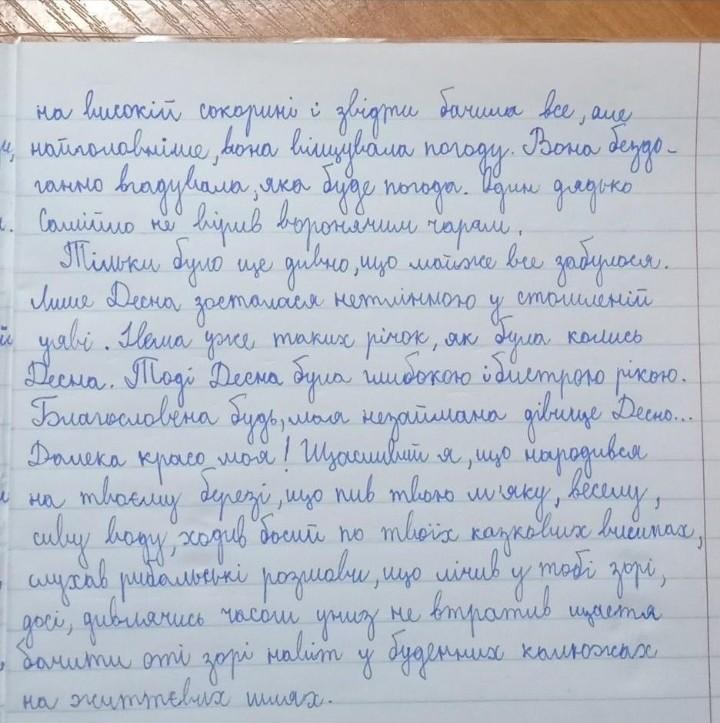 на високій сокорині і звідти бачила все, але
найголовніше, вона віщувала погоду. Вона бездо-
ганно вгадувала, яка буде погода. Один дядько
Самійло не вірив воронячим чарам.
Тільки було ще дивно, що майже все забулося.
Лише Десна зосталася нетлінною у стомленій
уяві. Нема уже таких річок, як була колись
Десна. Тоді Десна була глибокою і бистрою рікою.
Благословена будь, моя незаймана дівице Десно...
Далека красо моя! Щасливий я, що народився
на твоєму березі, що пив твою м'яку, веселу,
сиву воду, ходив босий по твоїх казкових висипах,
слухав рибальські розмови, що лічив у тобі зорі,
досі, дивлячись часом униз не втратив щастя
бачити оті зорі навіть у буденних калюжах
на життєвих шлях.